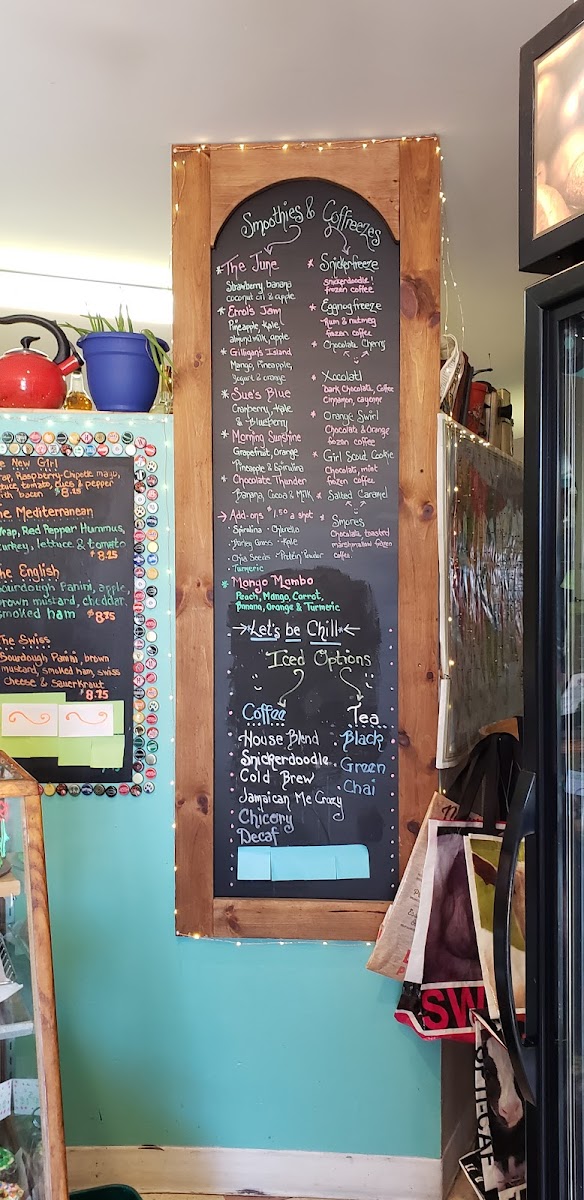 Smoothies & Coffreezes
* The June
Strawberry, banana
coconut oil & apple
* Errols Jam
Pineapple, Kale,
almond milk, apple
* Gilligan's Island
Mango, Pineapple,
Yogurt & orange
* Sue's Blue
Cranberry, Kale
& Blueberry
* Morning Sunshine
Grapefruit, Orange
Pineapple & Spirulina
* Chocolate Thunder
Banana, Cocoa & Milk
→ Add-ons $1.50 a shot
Spirulina - Chlorella
Barley Grass - Kale
Chia Seeds - Protein Powder
Turmeric
* Mango Mambo
Peach, Mango, Carrot,
Banana, Orange & Turmeric
* Snickerfreeze
snickerdoodle!
frozen coffee
* Eggnogfreeze
Rum & nutmeg
frozen coffee
* Chocolate Cherry
* Xocolatl
Dark Chocolate, Coffee
Cinnamon, cayenne
* Orange Swirl
Chocolate & Orange
frozen coffee
* Girl Scout Cookie
Chocolate, mint
frozen coffee
* Salted Caramel
* Smores
Chocolate toasted
marshmallow frozen
coffee
→ Let's be Chill ←
Iced Options
Coffee
House Blend
Snickerdoodle
Cold Brew
Jamaican Me Crazy
Chicory
Decaf
Tea
Black
Green
Chai
e New Girl
rap, Raspberry-Chipotle mayo,
ttuce, tomato, cukes & pepper
with bacon $8.15
he Mediterranean
Wrap, Red Pepper Hummus,
turkey, lettuce & tomato
$8.15
The English
Sourdough Panini, apple,
brown mustard, cheddar,
smoked ham $8.75
The Swiss
Sourdough Panini, brown
mustard, smoked ham, swiss
cheese & Sauerkraut
$8.75
SW